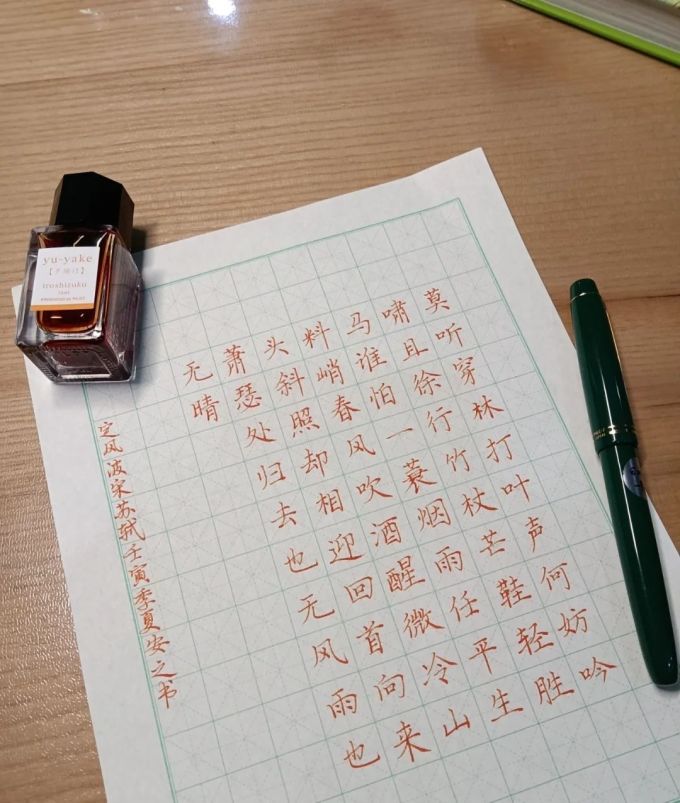 莫听穿林打叶声何妨吟
啸且徐行竹杖芒鞋轻胜
马谁怕一蓑烟雨任平生
料峭春风吹酒醒微冷山
头斜照却相迎回首向来
萧瑟处归去也无风雨也
无晴
定风波宋苏轼壬寅季夏安之书
yu-yake
【夕焼け】
iroshizuku